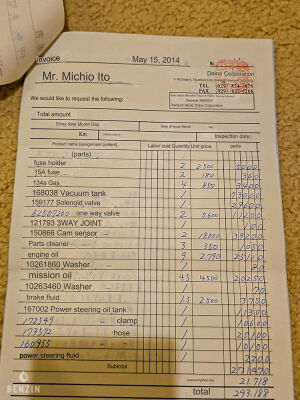 nvoice May 15, 2014 No.
Mr. Michio Ito
Deino Corporation
TEL (029) 824-1676
FAX (029) 822-5266
We would like to request the following:
Total amount
Entry date Month Day
Km Inspection date:
Product name (assignment content) Labor cost Quantity Unit price. parts
(parts)
fuse holder 2 2.500 5000
15A fuse 2 180 360
134a Gas 4 850 3400
168038 Vacuum tank 1 73000
159177 Solenoid valve 1 28600
62507200 one way valve 2 5600 11200
121793 3WAY JOINT 1
150866 Cam sensor 2 39200
Parts cleaner 3 350 1050
engine oil 9 2.790 25110
10261860 Washer 1 80
mission oil 4.5 4500 20250
10263460 Washer 1 70
brake fluid 1.5 2500 3750
167002 Power steering oil tank 11300
172549 " clamp 10600
173572 " hose 25100
160955 " 10100
power steering fluid 1 2200
Subtotal 271.470
consumption tax 21.718
total 293.188
BENZIN